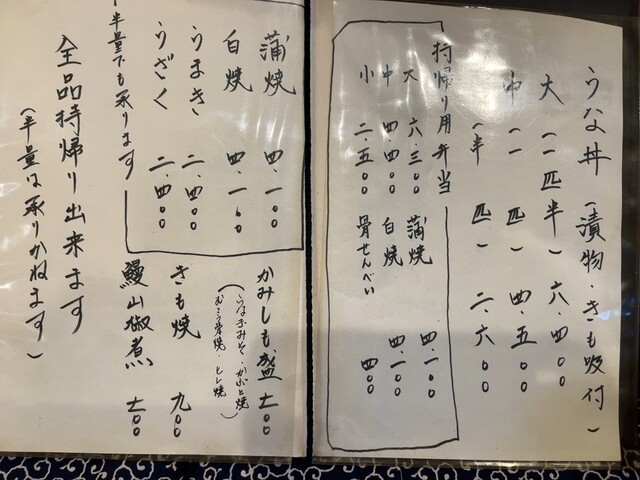 うな丼（漬物・きも吸付）
大（一匹半）六.四〇〇
中（一匹）四.五〇〇
（半匹）二.六〇〇
持帰り用弁当
大 六.三〇〇
中 四.四〇〇
小 二.五〇〇
蒲焼 四.一〇〇
白焼 四.一〇〇
骨せんべい 四〇〇
蒲焼 四.一〇〇
白焼 四.一〇〇
うまき 二.四〇〇
うざく 二.四〇〇
（半量でも承ります
かみしも盛 七〇〇
きも焼 九〇〇
鰻山椒煮 七〇〇
全品持帰り出来ます
（半量は承りかねます）